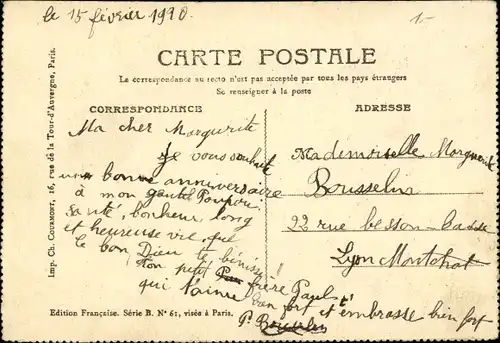 le 15 février 1920.
1-
CARTE POSTALE
La correspondance au recto n'est pas acceptée par tous les pays étrangers
Se renseigner à la poste
CORRESPONDANCE
Ma cher Margurite
Je vous souhaite
une bonne anniversaire
à mon
santé, bonheur long
et heureuse vie, que
le bon Dieu te bénisse!
Ton petit frère Paul
qui t'aime bien fort et t'embrasse bien fort
P. Bousselin
ADRESSE
Mademoiselle Marguerite
Bousselin
22 rue besson-basse
Lyon Montchat
Imp. Ch. COURMONT, 16, rue de la Tour-d'Auvergne, Paris.
Edition Française. Série B. N° 61, visée à Paris.